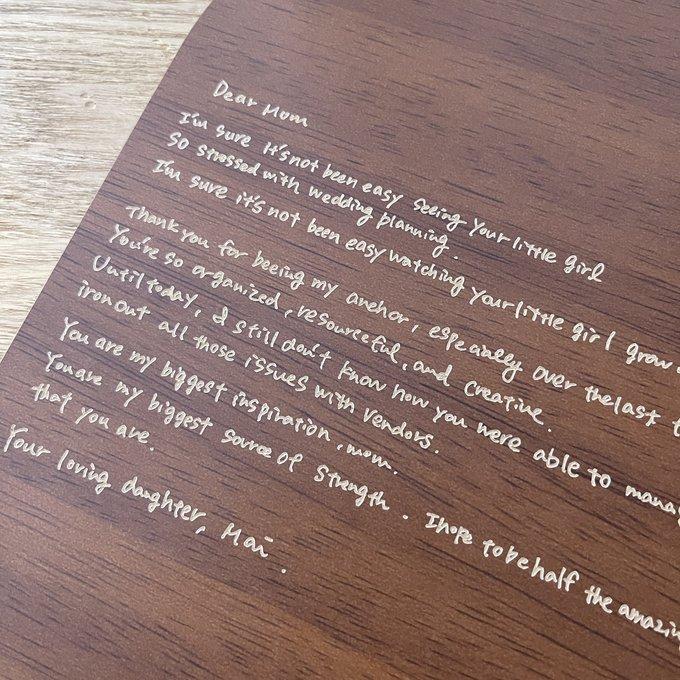 Dear Mom
I'm sure It's not been easy seeing your little girl
So stressed with wedding planning.
I'm sure it's not been easy watching your little girl grow
Thank you for beeing my anchor, especially over the last
You're so organized, resourceful, and creative.
Until today, I still don't know how you were able to manag
iron out all those issues with vendors.
You are my biggest inspiration, mom.
You are my biggest source of strength. I hope to be half the amazin
that you are.
Your loving daughter, Mai.